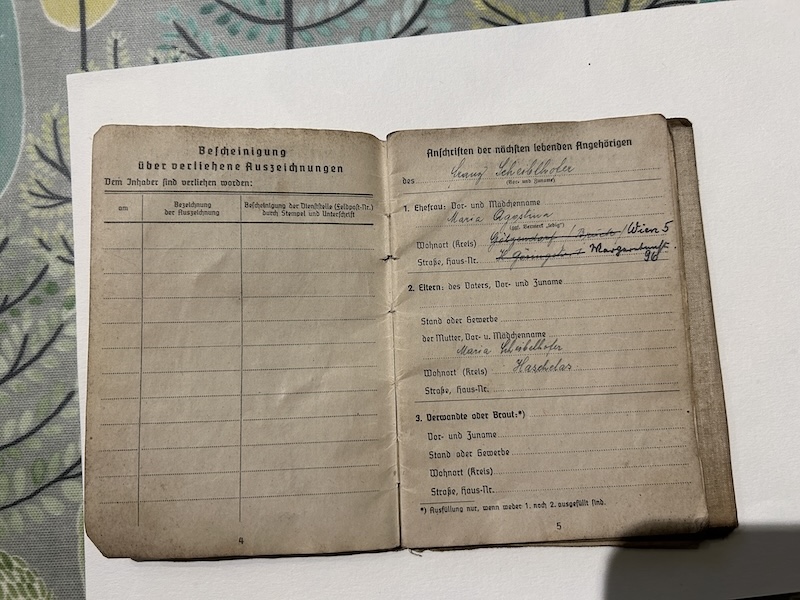 Bescheinigung
über verliehene Auszeichnungen
Dem Inhaber sind verliehen worden:
am
Bezeichnung
der Auszeichnung
Bescheinigung der Dienststelle (Feldpost-Nr.)
durch Stempel und Unterschrift
4
Anschriften der nächsten lebenden Angehörigen
des Franz Scheibelhofer
(Vor- und Zuname)
1. Ehefrau: Vor- und Mädchenname
Maria
(ggf. Vermerk „ledig")
Wohnort (Kreis) Götzendorf / Bruck / Wien 5
Straße, Haus-Nr. H. Göringstr.
96
2. Eltern: des Vaters, Vor- und Zuname
Stand oder Gewerbe
der Mutter, Vor- u. Mädchenname
Maria Scheibelhofer
Wohnort (Kreis)
Straße, Haus-Nr.
3. Verwandte oder Braut:*)
Vor- und Zuname
Stand oder Gewerbe
Wohnort (Kreis)
Straße, Haus-Nr.
*) Ausfüllung nur, wenn weder 1. noch 2. ausgefüllt sind.
5